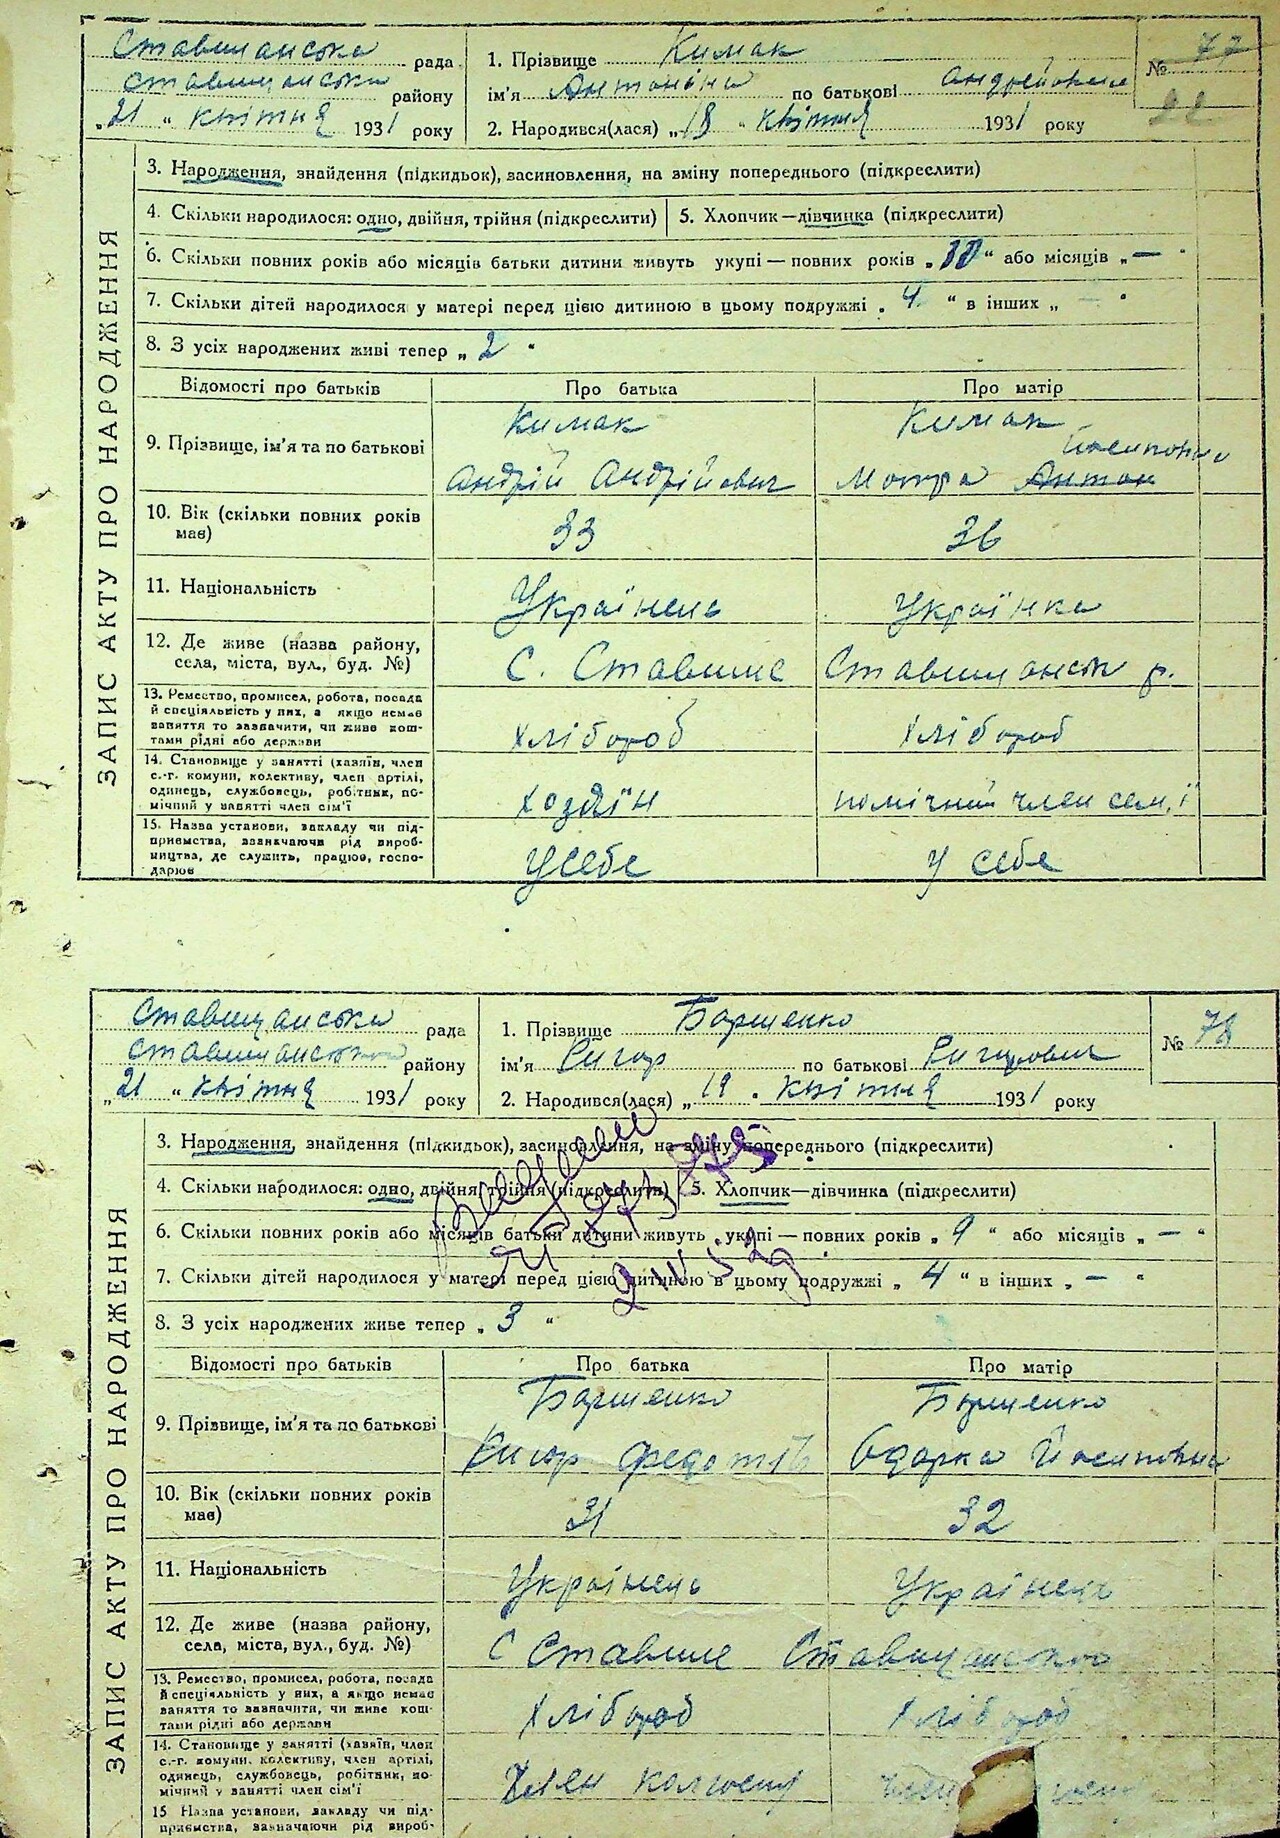 Ставищанська рада
Ставищанська району
„21“ квітня 1931 року
1. Прізвище Кимак
ім'я Антоніни по батькові
2. Народився(лася) „18“ квітня 1931 року
№ 77
22
ЗАПИС АКТУ ПРО НАРОДЖЕННЯ
3. Народження, знайдення (підкидьок), засиновлення, на зміну попереднього (підкреслити)
4. Скільки народилося: одно, двійня, трійня (підкреслити) 5. Хлопчик—дівчинка (підкреслити)
6. Скільки повних років або місяців батьки дитини живуть укупі — повних років „10“ або місяців „—“
7. Скільки дітей народилося у матері перед цією дитиною в цьому подружжі „4“ в інших „—“
8. З усіх народжених живі тепер „2“
Відомості про батьків Про батька Про матір
9. Прізвище, ім'я та по батькові
Кимак Кимак
Йосиповна
Андрій Андрійович Мотря Антон
10. Вік (скільки повних років має) 33 36
11. Національність Українець Українка
12. Де живе (назва району,
села, міста, вул., буд. №) С. Ставище Ставищанськ р.
13. Ремество, промисел, робота, посада
й спеціяльність у них, а якщо немає
заняття то зазначити, чи живе кош-
тами рідні або держави
Хлібороб Хлібороб
14. Становище у занятті (хазяїн, член
с.-г. комуни, колективу, член артілі,
одинець, службовець, робітник, по-
мічний у занятті член сім'ї
Хозяїн помічний член сем,ї
15. Назва установи, закладу чи під-
приємства, зазначаючи рід вироб-
ництва, де служить, працює, госпо-
дарює
У себе У себе
Ставищанська рада
Ставищанського району
„21“ квітня 1931 року
1. Прізвище
ім'я по батькові
2. Народився(лася) „19“ квітня 1931 року
№ 78
ЗАПИС АКТУ ПРО НАРОДЖЕННЯ
3. Народження, знайдення (підкидьок), засиновлення, на зміну попереднього (підкреслити)
4. Скільки народилося: одно, двійня, трійня (підкреслити) 5. Хлопчик—дівчинка (підкреслити)
6. Скільки повних років або місяців батьки дитини живуть укупі — повних років „9“ або місяців „—“
7. Скільки дітей народилося у матері перед цією дитиною в цьому подружжі „4“ в інших „—“
8. З усіх народжених живе тепер „3“
Відомості про батьків Про батька Про матір
9. Прізвище, ім'я та по батькові
Одарка Йосиповна
10. Вік (скільки повних років має) 31 32
11. Національність Українець Українець
12. Де живе (назва району,
села, міста, вул., буд. №) С Ставище Ставищанського
13. Ремество, промисел, робота, посада
й спеціяльність у них, а якщо немає
заняття то зазначити, чи живе кош-
тами рідні або держави
Хлібороб Хлібороб
14. Становище у занятті (хазяїн, член
с.-г. комуни, колективу, член артілі,
одинець, службовець, робітник, по-
мічний у занятті член сім'ї
Член колгоспу
15 Назва установи, закладу чи під-
приємства, зазначаючи рід вироб-